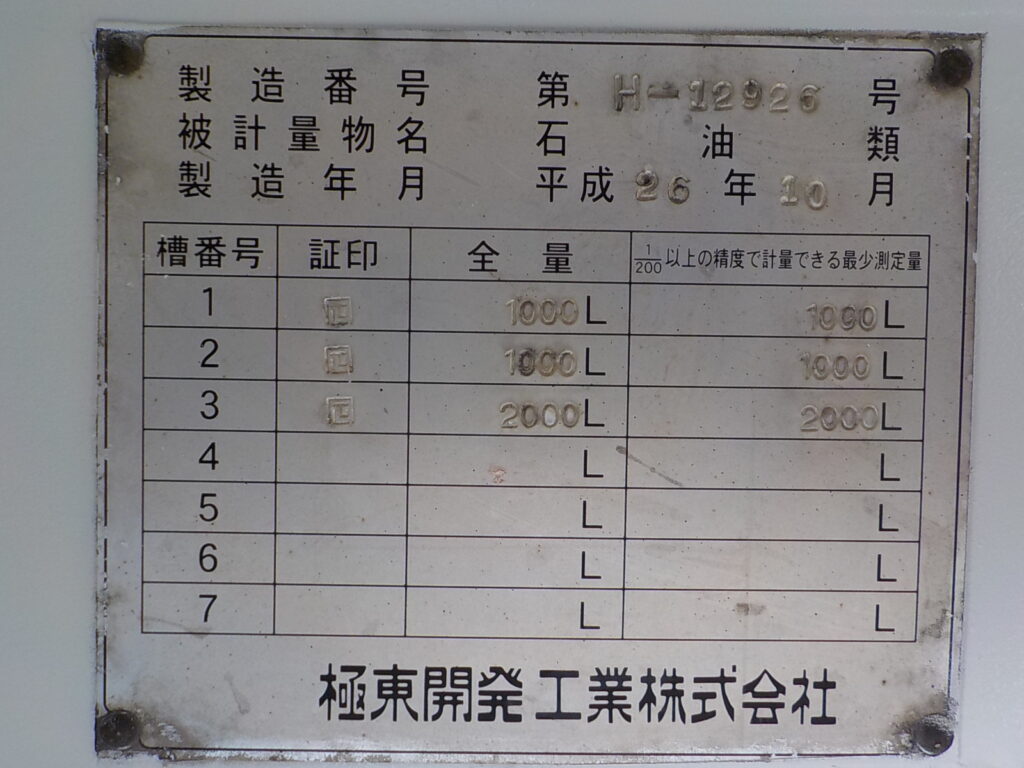 製造番号 第 H-12926 号
被計量物名 石油類
製造年月 平成 26 年 10 月
槽番号 証印 全量 1/200以上の精度で計量できる最少測定量
1 正 1000L 1000L
2 正 1000L 1000L
3 正 2000L 2000L
4 L L
5 L L
6 L L
7 L L
極東開発工業株式会社